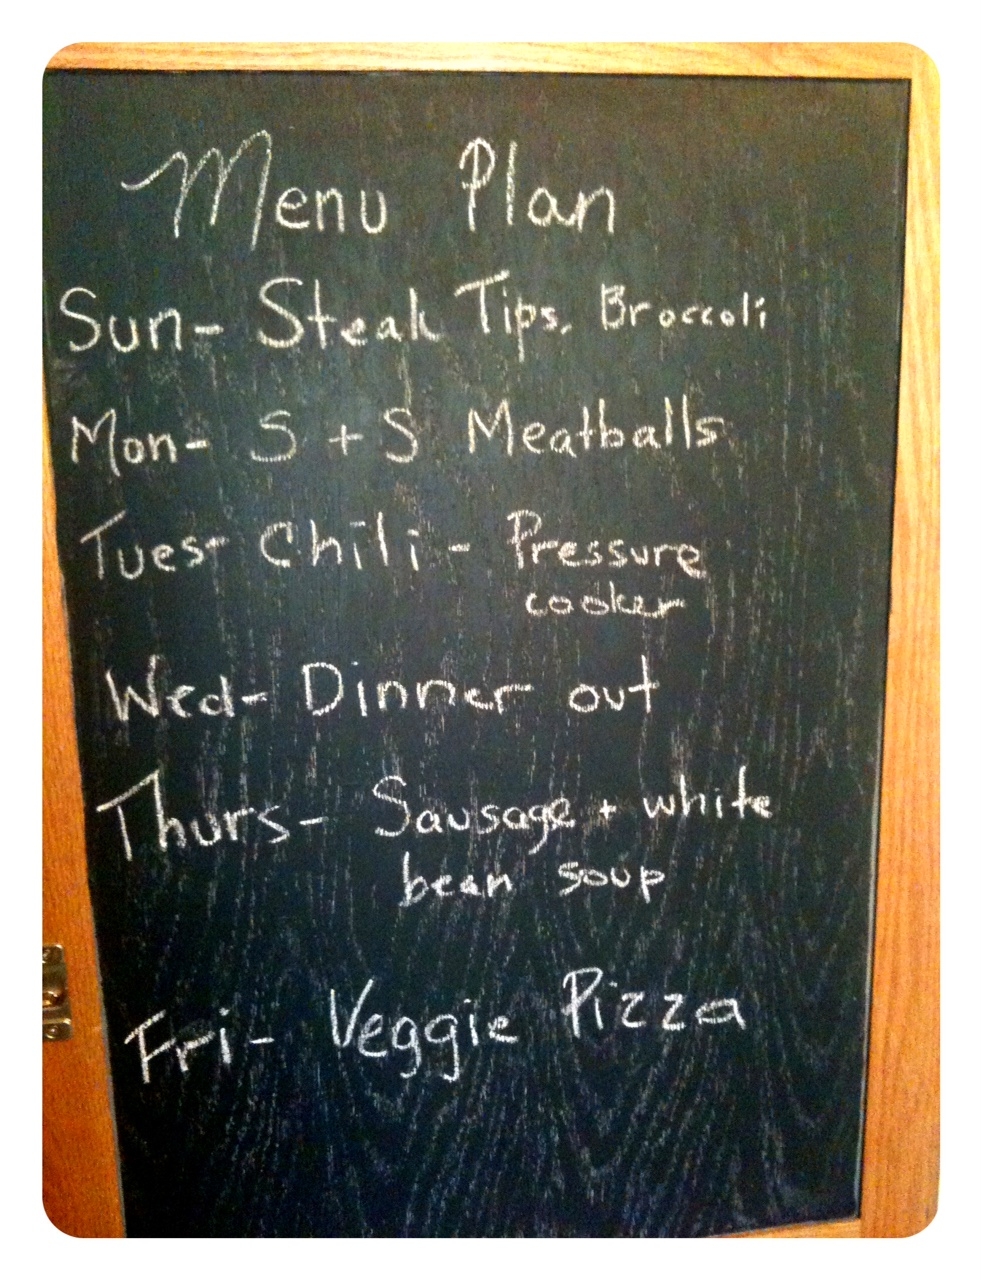 Menu Plan
Sun- Steak Tips, Broccoli
Mon- S + S Meatballs
Tues- Chili - Pressure
cooker
Wed- Dinner out
Thurs- Sausage + white
bean soup
Fri- Veggie Pizza